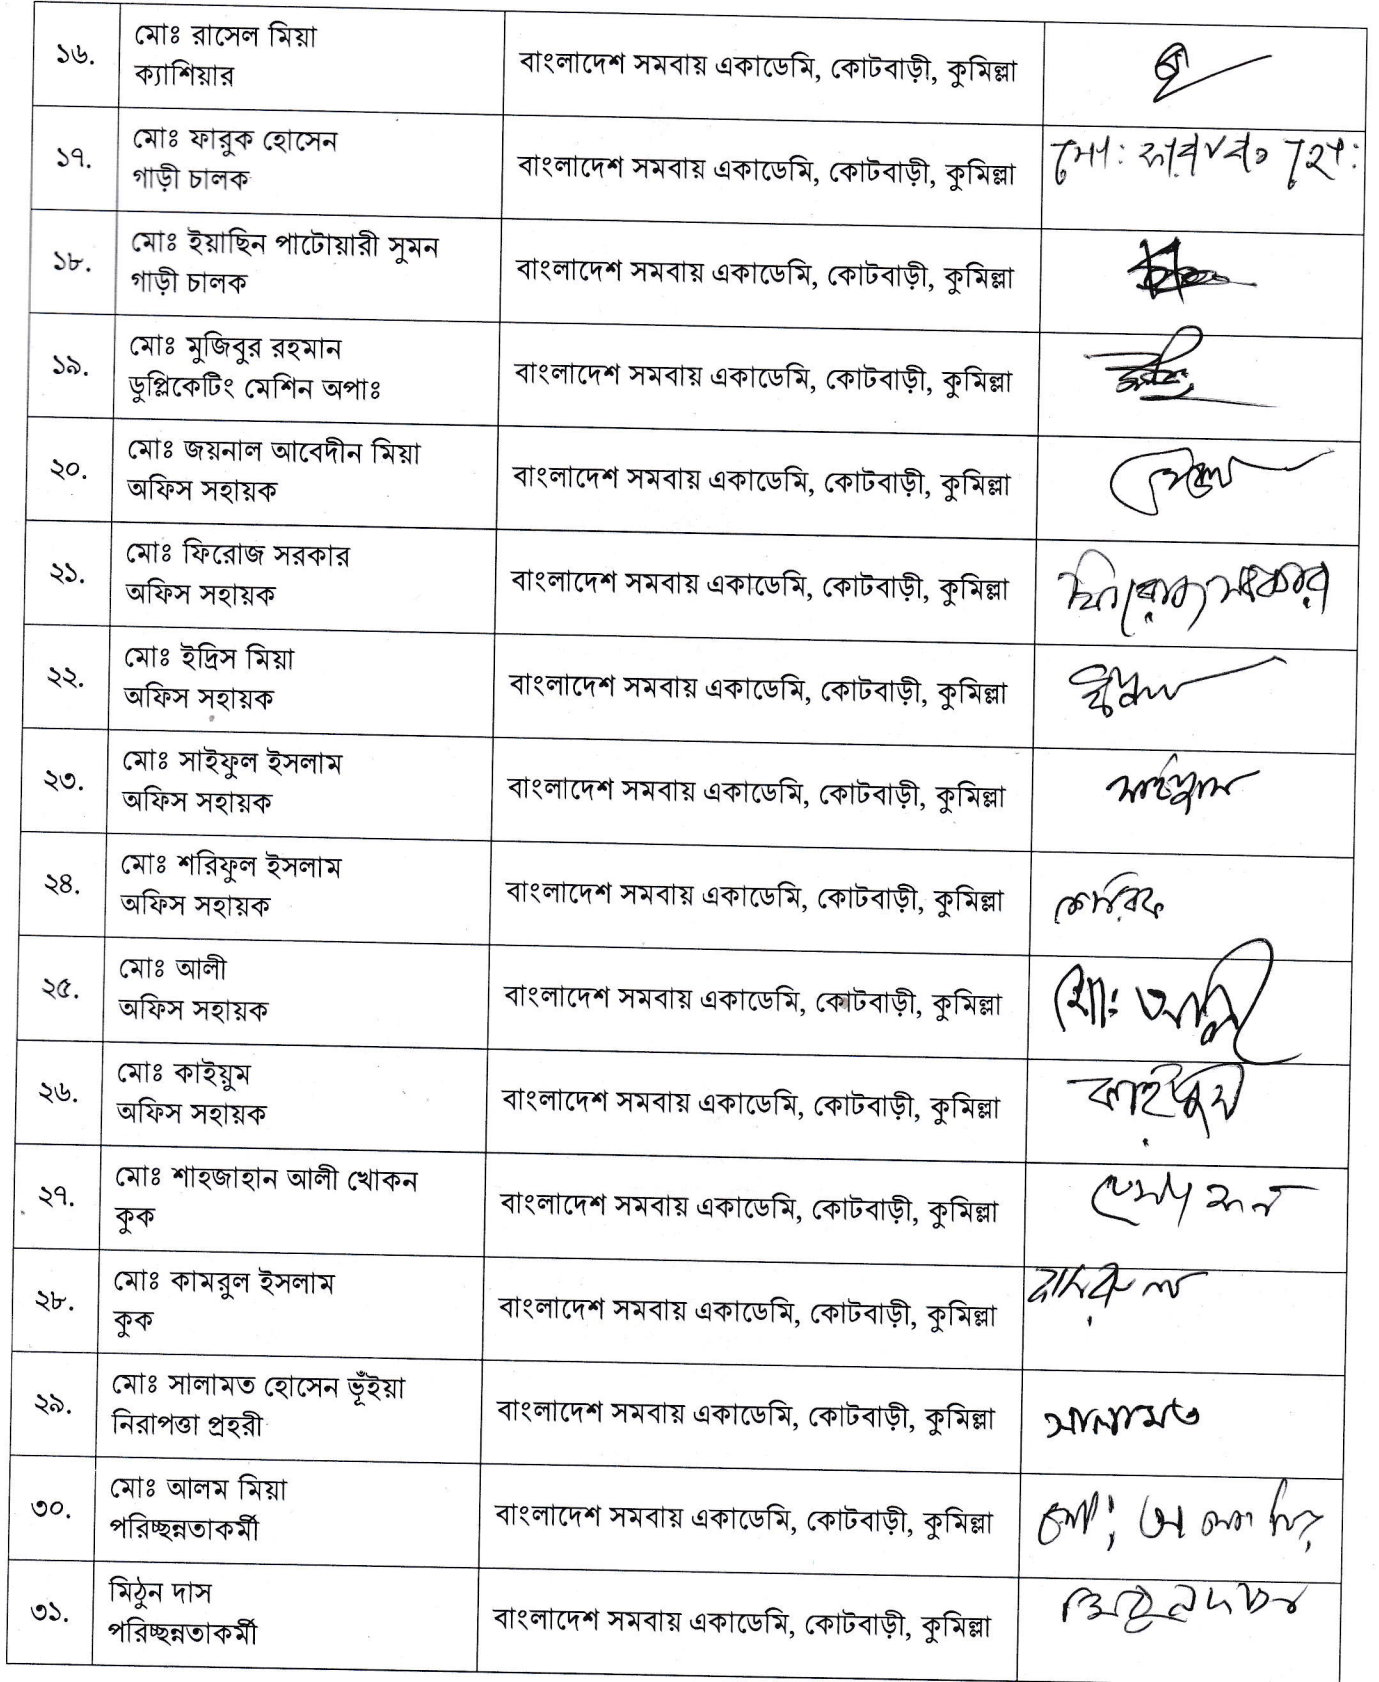 ১৬.
মোঃ রাসেল মিয়া
ক্যাশিয়ার
বাংলাদেশ সমবায় একাডেমি, কোটবাড়ী, কুমিল্লা
১৭.
মোঃ ফারুক হোসেন
গাড়ী চালক
বাংলাদেশ সমবায় একাডেমি, কোটবাড়ী, কুমিল্লা
১৮.
মোঃ ইয়াছিন পাটোয়ারী সুমন
গাড়ী চালক
বাংলাদেশ সমবায় একাডেমি, কোটবাড়ী, কুমিল্লা
১৯.
মোঃ মুজিবুর রহমান
ডুপ্লিকেটিং মেশিন অপাঃ
বাংলাদেশ সমবায় একাডেমি, কোটবাড়ী, কুমিল্লা
২০.
মোঃ জয়নাল আবেদীন মিয়া
অফিস সহায়ক
বাংলাদেশ সমবায় একাডেমি, কোটবাড়ী, কুমিল্লা
২১.
মোঃ ফিরোজ সরকার
অফিস সহায়ক
বাংলাদেশ সমবায় একাডেমি, কোটবাড়ী, কুমিল্লা
২২.
মোঃ ইদ্রিস মিয়া
অফিস সহায়ক
বাংলাদেশ সমবায় একাডেমি, কোটবাড়ী, কুমিল্লা
২৩.
মোঃ সাইফুল ইসলাম
অফিস সহায়ক
বাংলাদেশ সমবায় একাডেমি, কোটবাড়ী, কুমিল্লা
২৪.
মোঃ শরিফুল ইসলাম
অফিস সহায়ক
বাংলাদেশ সমবায় একাডেমি, কোটবাড়ী, কুমিল্লা
২৫.
মোঃ আলী
অফিস সহায়ক
বাংলাদেশ সমবায় একাডেমি, কোটবাড়ী, কুমিল্লা
মোঃ আলী
২৬.
মোঃ কাইয়ুম
অফিস সহায়ক
বাংলাদেশ সমবায় একাডেমি, কোটবাড়ী, কুমিল্লা
কাইয়ুম
২৭.
মোঃ শাহজাহান আলী খোকন
কুক
বাংলাদেশ সমবায় একাডেমি, কোটবাড়ী, কুমিল্লা
২৮.
মোঃ কামরুল ইসলাম
কুক
বাংলাদেশ সমবায় একাডেমি, কোটবাড়ী, কুমিল্লা
২৯.
মোঃ সালামত হোসেন ভূঁইয়া
নিরাপত্তা প্রহরী
বাংলাদেশ সমবায় একাডেমি, কোটবাড়ী, কুমিল্লা
সালামত
৩০.
মোঃ আলম মিয়া
পরিচ্ছন্নতাকর্মী
বাংলাদেশ সমবায় একাডেমি, কোটবাড়ী, কুমিল্লা
৩১.
মিঠুন দাস
পরিচ্ছন্নতাকর্মী
বাংলাদেশ সমবায় একাডেমি, কোটবাড়ী, কুমিল্লা